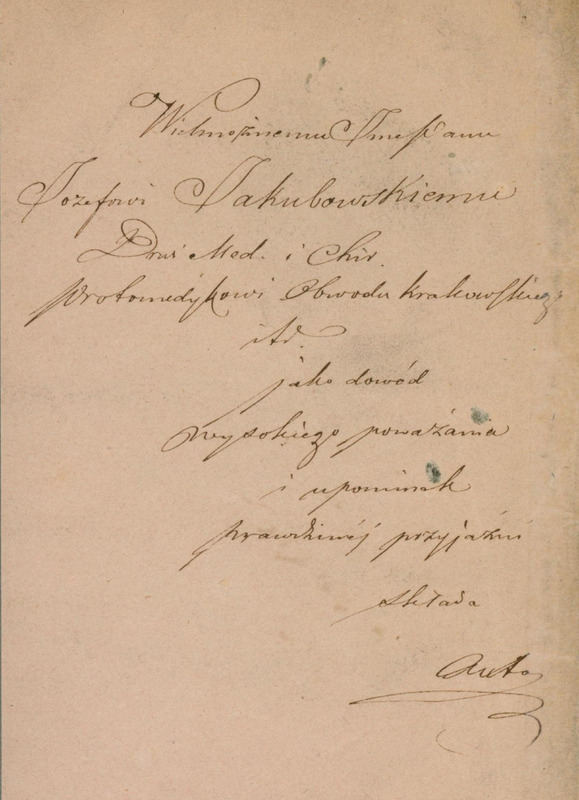 Wielmożnemu JmePanu
Józefowi Jakubowskiemu
Drwi Med. i Chir.
protomedykowi Obwodu Krakowskiego
itd.
jako dowód
wysokiego poważania
i upominek
prawdziwéj przyjaźni
składa
Autor